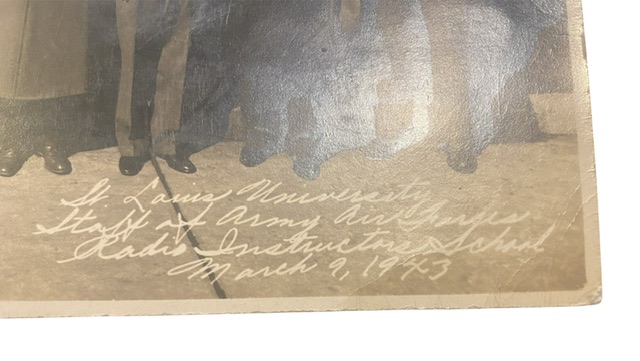 St Louis University
Staff of Army Air Forces
Radio Instructors School
March 9, 1943